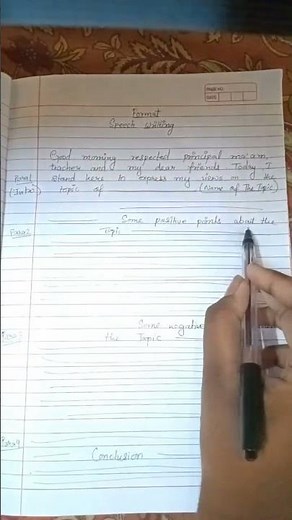 PAGE NO.
DATE
Format
Speech writing
Good morning respected principal ma'am,
teacher and my dear friends Today I
stand here to express my views on the
(Intro) topic of (Name of The Topic)
Some positive points about the
Topic
Some negative
the Topic
Conclusion